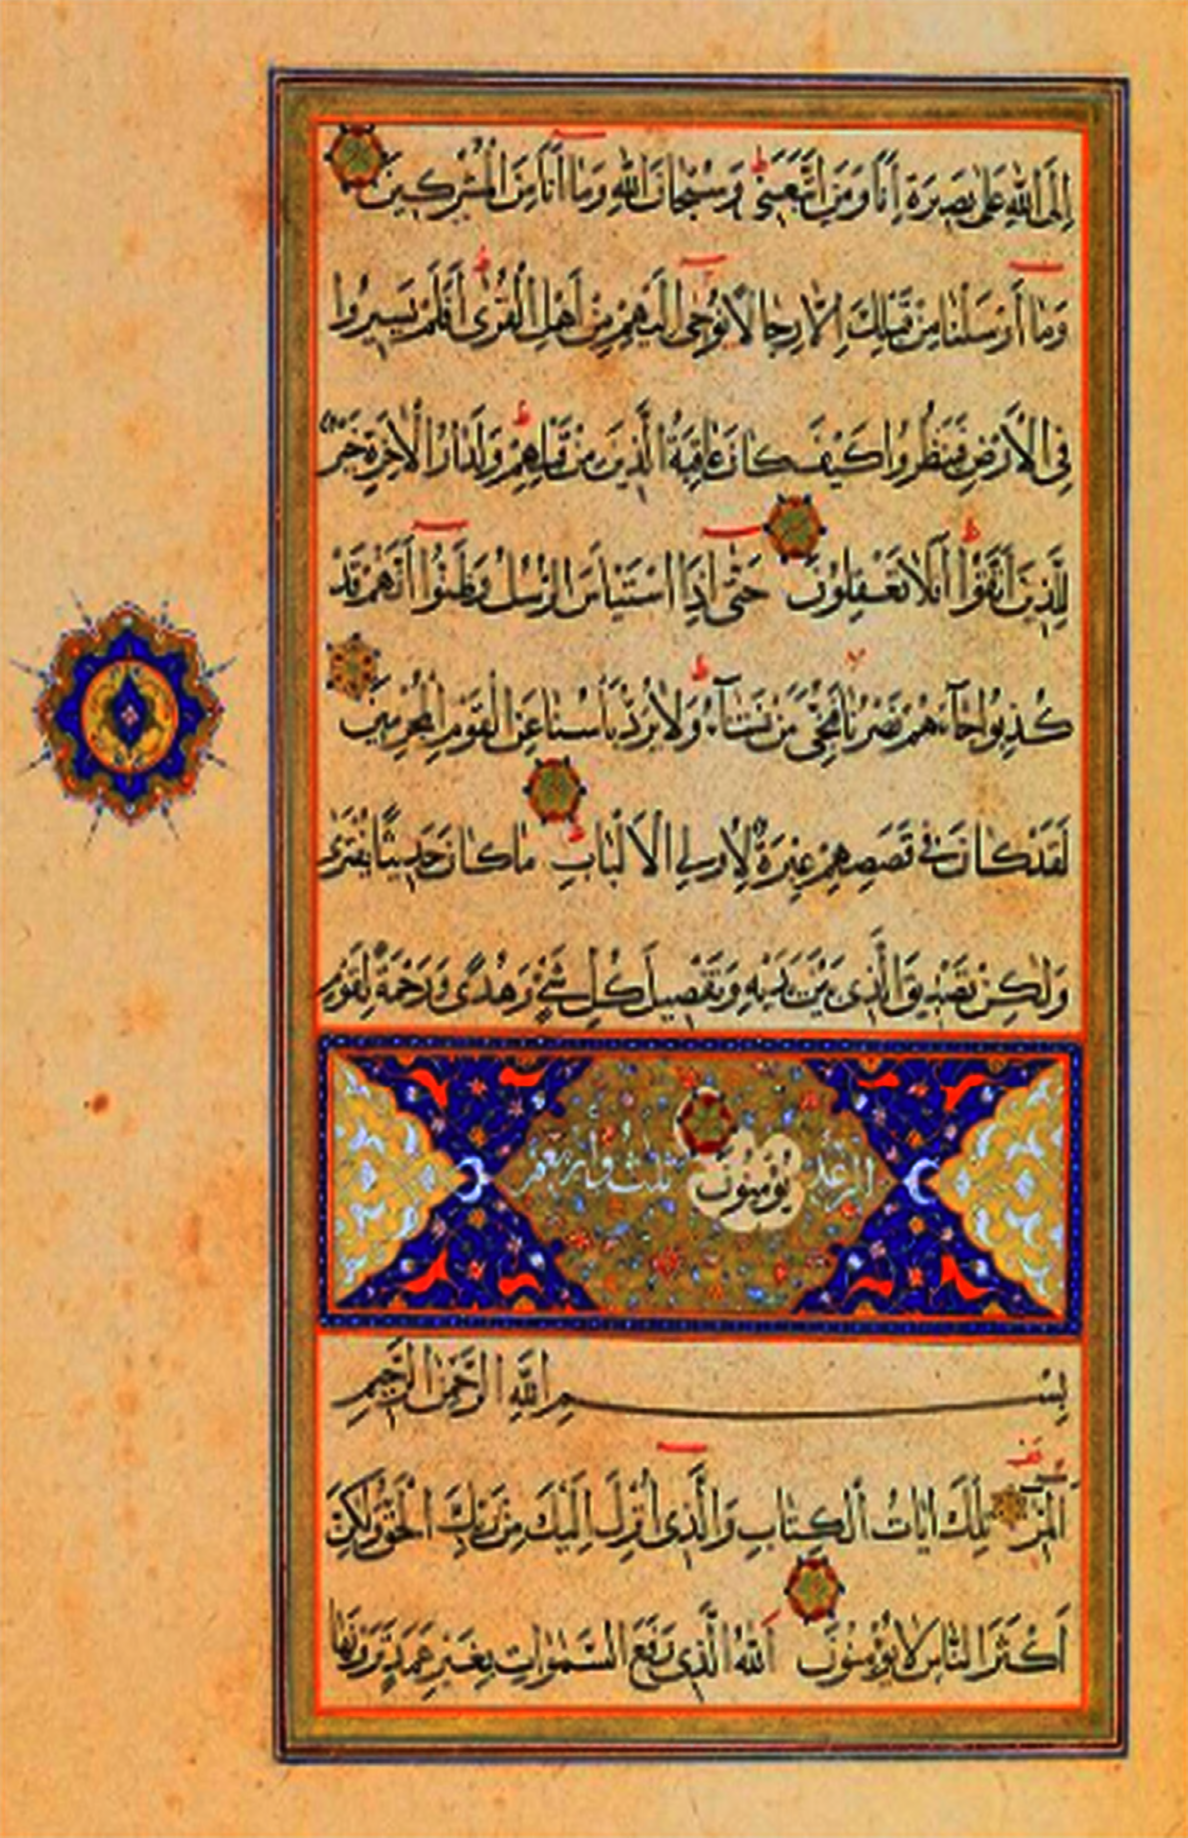 إِلَى اللهِ عَلَى بَصِيرَةٍ أَنَا وَمَنِ اتَّبَعَنِي وَسُبْحَانَ اللهِ وَمَا أَنَا مِنَ الْمُشْرِكِينَ
وَمَا أَرْسَلْنَا مِنْ قَبْلِكَ إِلَّا رِجَالًا نُوحِى إِلَيْهِمْ مِنْ أَهْلِ الْقُرَى أَفَلَمْ يَسِيرُوا
فِى الْأَرْضِ فَيَنْظُرُوا كَيْفَ كَانَ عَاقِبَةُ الَّذِينَ مِنْ قَبْلِهِمْ وَلَدَارُ الْآخِرَةِ خَيْرٌ
لِلَّذِينَ اتَّقَوْا أَفَلَا تَعْقِلُونَ حَتَّى إِذَا اسْتَيْأَسَ الرُّسُلُ وَظَنُّوا أَنَّهُمْ قَدْ
كُذِبُوا جَاءَهُمْ نَصْرُنَا فَنُجِّىَ مَنْ نَشَاءُ وَلَا يُرَدُّ بَأْسُنَا عَنِ الْقَوْمِ الْمُجْرِمِينَ
لَقَدْ كَانَ فِى قَصَصِهِمْ عِبْرَةٌ لِأُولِى الْأَلْبَابِ مَا كَانَ حَدِيثًا يُفْتَرَى
وَلٰكِنْ تَصْدِيقَ الَّذِى بَيْنَ يَدَيْهِ وَتَفْصِيلَ كُلِّ شَىْءٍ وَهُدًى وَرَحْمَةً لِقَوْمٍ
الرعد يُؤْمِنُونَ ثلث واربعون
بِسْمِ اللهِ الرَّحْمٰنِ الرَّحِيمِ
المر تِلْكَ اٰيَاتُ الْكِتَابِ وَالَّذِى أُنْزِلَ إِلَيْكَ مِنْ رَبِّكَ الْحَقُّ وَلٰكِنَّ
أَكْثَرَ النَّاسِ لَا يُؤْمِنُونَ اَللهُ الَّذِى رَفَعَ السَّمٰوَاتِ بِغَيْرِ عَمَدٍ تَرَوْنَهَا